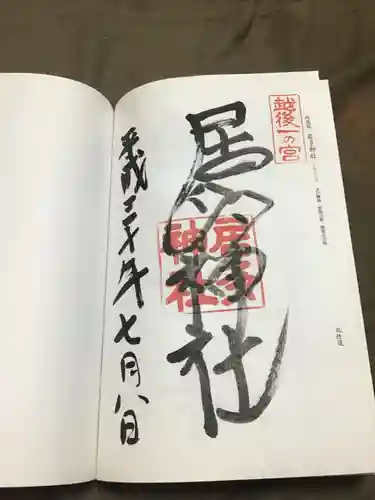 越後一の宮
居多神社
居多
神社
平成三十年七月八日